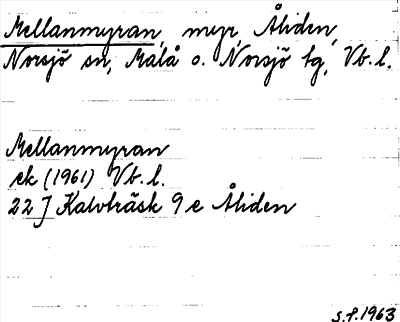 Mellanmyran, myr, Åliden,
Norsjö sn, Malå o. Norsjö tg, Vb. l.
Mellanmyran
ek (1961) Vb. l.
22 J Kalvträsk 9 e Åliden
S.F. 1963